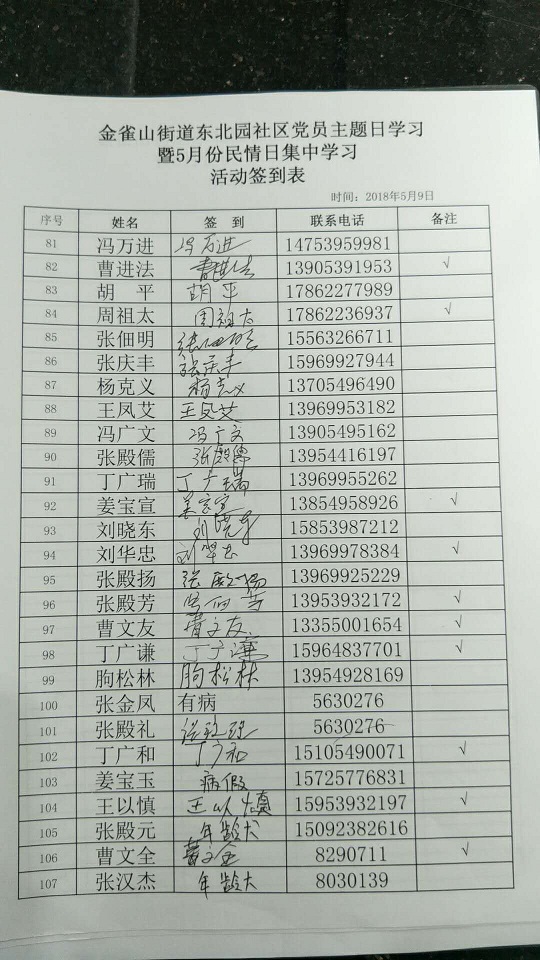 金雀山街道东北园社区党员主题日学习
暨5月份民情日集中学习
活动签到表
时间：2018年5月9日
序号 姓名 签 到 联系电话 备注
81 冯万进 冯万进 14753959981
82 曹进法 曹进法 13905391953 √
83 胡 平 胡平 17862277989
84 周祖太 周祖太 17862236937 √
85 张佃明 张佃明 15563266711
86 张庆丰 张庆丰 15969927944
87 杨克义 杨克义 13705496490
88 王凤艾 王凤艾 13969953182
89 冯广文 冯广文 13905495162
90 张殿儒 张殿儒 13954416197
91 丁广瑞 丁广瑞 13969955262
92 姜宝宣 姜宝宣 13854958926 √
93 刘晓东 刘晓东 15853987212
94 刘华忠 刘华忠 13969978384 √
95 张殿扬 张殿扬 13969925229
96 张殿芳 13953932172 √
97 曹文友 曹文友 13355001654 √
98 丁广谦 丁广谦 15964837701 √
99 胊松林 胊松林 13954928169
100 张金凤 有病 5630276
101 张殿礼 5630276
102 丁广和 丁广和 15105490071 √
103 姜宝玉 病假 15725776831
104 王以慎 王以慎 15953932197 √
105 张殿元 年龄大 15092382616
106 曹文全 曹文全 8290711 √
107 张汉杰 年龄大 8030139